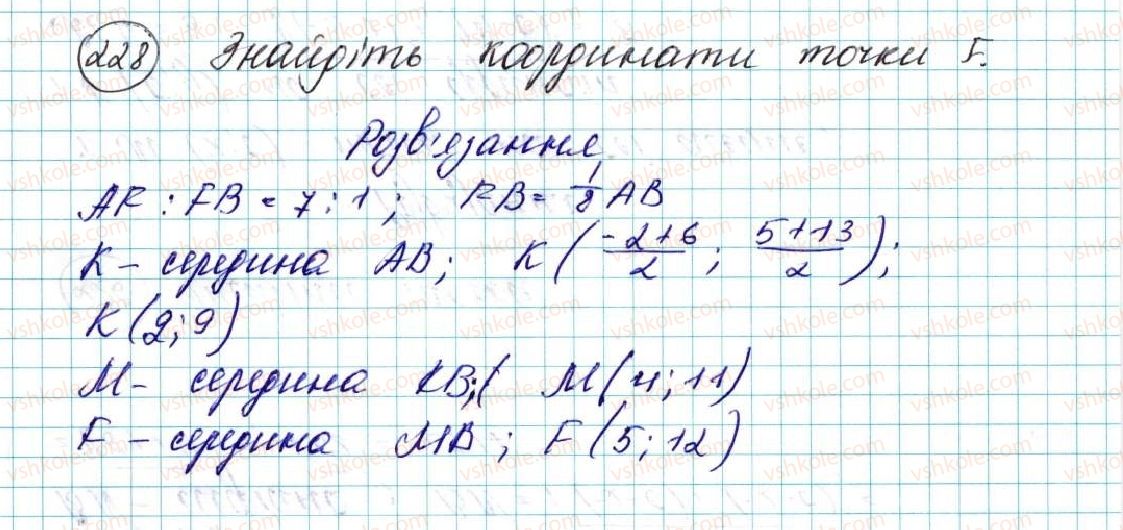 228 Знайдіть координати точки F.
Розв'язання
AF : FB = 7 : 1 ; FB = 1/8 AB
K - середина AB; K ( -2+6/2 ; 5+13/2 );
K (2; 9)
M - середина KB; ( M (4; 11)
F - середина MB ; F (5; 12)